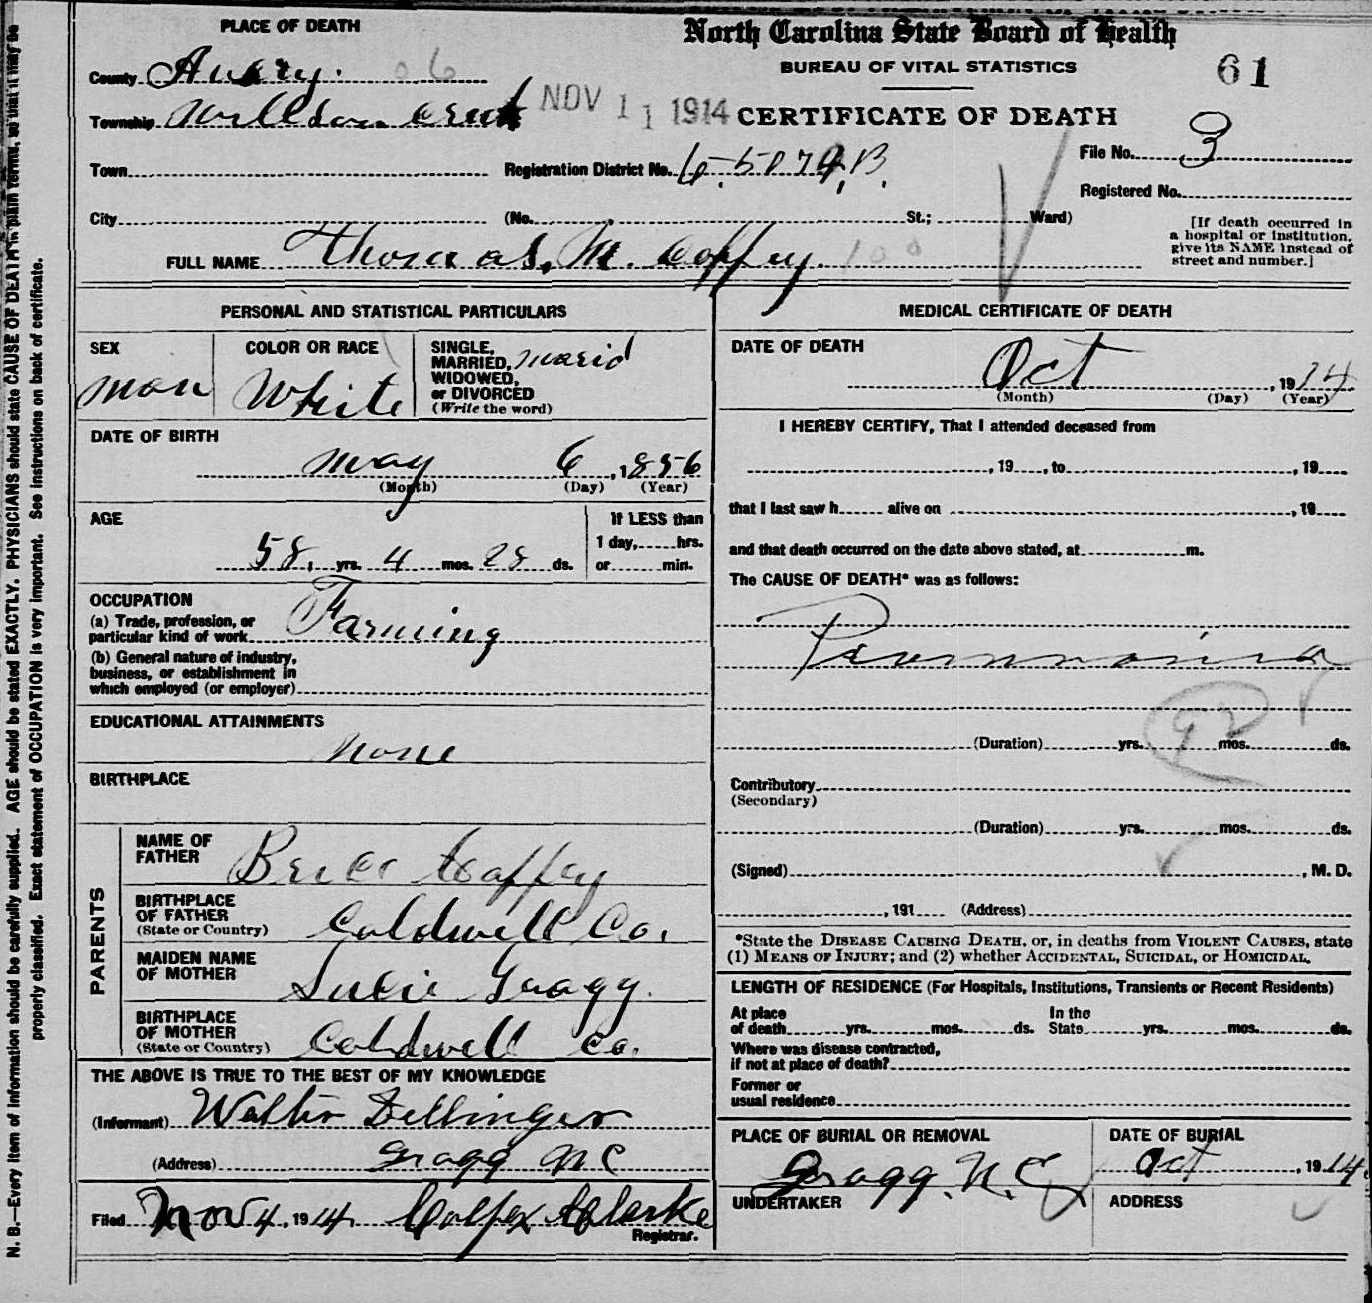 North Carolina State Board of Health
BUREAU OF VITAL STATISTICS
CERTIFICATE OF DEATH
61
PLACE OF DEATH
County Avery. 06
Township Creek NOV 11 1914
Town
Registration District No. 6-5074, B.
File No. 3
Registered No.
City (No. St.; Ward)
[If death occurred in
a hospital or institution,
give its NAME instead of
street and number.]
FULL NAME Thomas, M. Coffey. 100
PERSONAL AND STATISTICAL PARTICULARS
SEX
man
COLOR OR RACE
White
SINGLE,
MARRIED,
WIDOWED,
or DIVORCED
(Write the word)
marid
DATE OF BIRTH
may 6, 1856
(Month) (Day) (Year)
AGE
58, yrs. 4 mos. 28 ds.
If LESS than
1 day, hrs.
or min.
OCCUPATION
(a) Trade, profession, or
particular kind of work Farming
(b) General nature of industry,
business, or establishment in
which employed (or employer)
EDUCATIONAL ATTAINMENTS
none
BIRTHPLACE
PARENTS
NAME OF
FATHER
Coffey
BIRTHPLACE
OF FATHER
(State or Country)
Caldwell Co.
MAIDEN NAME
OF MOTHER
Gragg.
BIRTHPLACE
OF MOTHER
(State or Country)
Caldwell Co.
THE ABOVE IS TRUE TO THE BEST OF MY KNOWLEDGE
(Informant) Walter Dellinger
(Address) Gragg NC
Filed Nov 4, 1914 Colfex Clarke
Registrar.
MEDICAL CERTIFICATE OF DEATH
DATE OF DEATH
Oct , 1914
(Month) (Day) (Year)
I HEREBY CERTIFY, That I attended deceased from
, 19 , to , 19
that I last saw h alive on , 19
and that death occurred on the date above stated, at m.
The CAUSE OF DEATH* was as follows:
92
(Duration) yrs. mos. ds.
Contributory
(Secondary)
(Duration) yrs. mos. ds.
(Signed) , M. D.
, 191 (Address)
*State the DISEASE CAUSING DEATH, or, in deaths from VIOLENT CAUSES, state
(1) MEANS OF INJURY; and (2) whether ACCIDENTAL, SUICIDAL, or HOMICIDAL.
LENGTH OF RESIDENCE (For Hospitals, Institutions, Transients or Recent Residents)
At place
of death yrs. mos. ds.
In the
State yrs. mos. ds.
Where was disease contracted,
if not at place of death?
Former or
usual residence
PLACE OF BURIAL OR REMOVAL
Gragg. N. C
DATE OF BURIAL
Oct , 1914
UNDERTAKER
ADDRESS
N. B.—Every item of information should be carefully supplied. AGE should be stated EXACTLY. PHYSICIANS should state CAUSE OF DEATH in plain terms, so that it may be
properly classified. Exact statement of OCCUPATION is very important. See instructions on back of certificate.